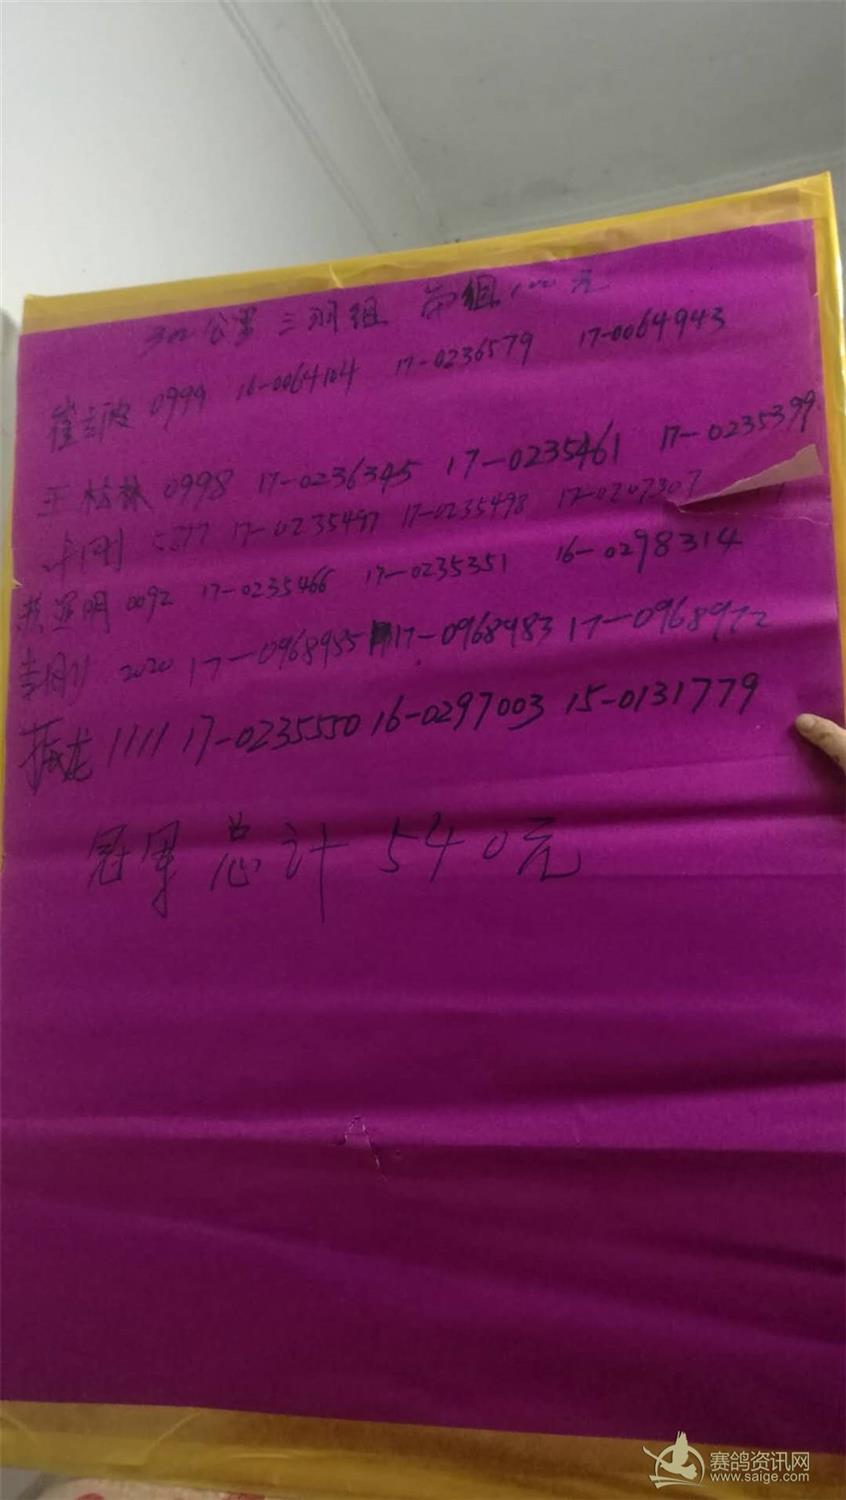 300公里 三羽组 每组100元
崔云波 0999 16-0064104 17-0236579 17-0064943
王松林 0998 17-0236345 17-0235461 17-0235399
叶刚 17-0235497 17-0235498 17-0207307
显明 0092 17-0235466 17-0235351 16-0298314
2020 17-0968955 17-0968983 17-0968972
振龙 1111 17-0235550 16-0297003 15-0131779
冠军 总计 540元
赛鸽资讯网
www.saige.com